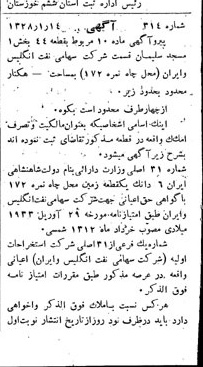 رئیس اداره ثبت استان ششم خوزستان
شماره ۳۱۴ آگهی ۱۳۲۸/۱/۱۴
پیروآگهی ماده ۱۰ مربوط بقطعه ۴۴ بخش ۱
مسجد سلیمان قسمت شرکت سهامی نفت انگلیس
وایران (محل چاه نمره ۱۷۲) بمساحت — هکتار
محدود بحدود زیر.
ازچهارطرف محدود است بکوه.
اینك اسامی اشخاصیکه بعنوان مالکیت و تصرف
املاك واقعه در قطعه مذکور تقاضای ثبت نموده اند
بشرح زیر آگهی میشود.
شماره ۳۱ اصلی وزارت دارائی بنام دولت شاهنشاهی
ایران ۶ دانك یکقطعه زمین محل چاه نمره ۱۷۲
باگواهی حق اعیانی جهت شرکت سهامی نفت انگلیس
وایران طبق امتیازنامه مورخه ۲۹ آوریل ۱۹۳۳
میلادی مصوب خرداد ماه ۱۳۱۲ شمسی.
شماره یك فرعی از ۳۱ اصلی شرکت استخراجات
اولیه (شرکت سهامی نفت انگلیس وایران) اعیانی
واقعه در عرصه مذکور طبق مقررات امتیاز نامه
فوق الذکر.
هر کس نسبت باملاك فوق الذکر واخواهی
دارد باید درظرف نود روز از تاریخ انتشار نوبت اول